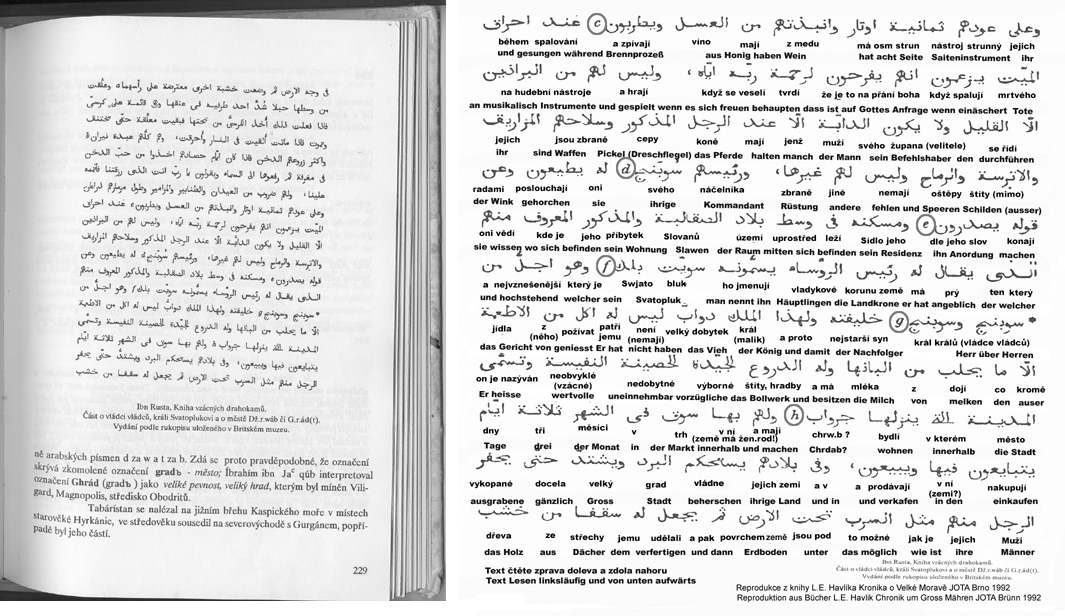 في وجه الارض ثم وضعت خشبة اخرى معترضة على رأسهما وعلّقت
من وسطها حبلا شدّ احد طرفيه في عنقها وهى قائمة على كرسى
فاذا فعلت ذلك أخذ الكرسى من تحتها فبقيت معلّقة حتى تختنق
وتموت فاذا ماتت ألقيت في النار وأحرقت، وهم كلهم عبدة نيران
واكثر زروعهم الدخن فاذا كان ايّام حصادهم اخذوا من حبّ الدخن
في مغرفة ثم رفعوها الى السماء ويقولون يا ربّ انت الذى رزقتنا فأتمه
علينا، ولهم ضروب من العيدان والطنابير والمزامير وطول مزمارهم ذراعان
وعلى عودهم ثمانية اوتار وانبذتهم من العسل ويطربون عند احراق
الميّت يزعمون انهم يفرحون لرحمة ربّه ايّاه، وليس لهم من البراذين
الّا القليل ولا يكون الدابّة الّا عند الرجل المذكور وسلاحهم المزاريق
والاترسة والرماح وليس لهم غيرها، ورئيسهم سوبنج له يطيعون وعن
قوله يصدرون ومسكنه في وسط بلاد الصقالبة والمذكور المعروف منهم
الذى يقال له رئيس الرؤساء يسمّونه سويت بلك وهو اجلّ من
*سوبنج وسوبنج خليفته ولهذا الملك دوابّ ليس له اكل من الاطعمة
الّا ما يحلب من البانها وله الدروع الجيّدة الحصينة النفيسة وتسمّى
المدينة التى ينزلها جرواب ولهم بها سوق في الشهر ثلاثة ايّام
يتبايعون فيها ويبيعون، وفي بلادهم يستحكم البرد ويشتدّ حتى يحفر
الرجل منهم مثل السرب تحت الارض ثم يجعل له سقفا من خشب
Ibn Rusta, Kniha vzácných drahokamů.
Část o vládci vládců, králi Svatoplukovi a o městě Dž.r.wáb či G.r.ád(t).
Vydání podle rukopisu uloženého v Britském muzeu.
ně arabských písmen d za w a t za b. Zdá se proto pravděpodobné, že označení
skrývá zkomolené označení gradъ - město; Íbrahím ibn Jaᶜ qúb interpretoval
označení Ghrád (gradъ ) jako veliké pevnost, veliký hrad, kterým byl míněn Vili-
gard, Magnopolis, středisko Obodritů.
Tabáristan se nalézal na jižním břehu Kaspického moře v místech
starověké Hyrkánie, ve středověku sousedil na severovýchodě s Gurgánem, popří-
padě byl jeho částí.
229
وعلى عودهم ثمانية اوتار وانبذتهم من العسل ويطربون c عند احراق
během spalování a zpívají víno mají z medu má osm strun nástroj strunný jejich
und gesungen während Brennprozeß aus Honig haben Wein hat acht Seite Saiteninstrument ihr
الميّت يزعمون انهم يفرحون لرحمة ربّه ايّاه، وليس لهم من البراذين
na hudební nástroje a hrají když se veselí tvrdí že je to na přání boha když spalují mrtvého
an musikalisch Instrumente und gespielt wenn es sich freuen behaupten dass ist auf Gottes Anfrage wenn einäschert Tote
الّا القليل ولا يكون الدابّة الّا عند الرجل المذكور وسلاحهم المزاريق
jejich jsou zbraně cepy koně mají jenž muži svého župana (velitele) se řídí
ihr sind Waffen Pickel (Dreschflegel) das Pferde halten manch der Mann sein Befehlshaber den durchführen
والاترسة والرماح وليس لهم غيرها، ورئيسهم سوبنج d له يطيعون وعن
radami poslouchají oni svého náčelníka zbraně jiné nemají oštěpy štíty (mimo)
der Wink gehorchen sie ihrige Kommandant Rüstung andere fehlen und Speeren Schilden (ausser)
قوله يصدرون e ومسكنه في وسط بلاد الصقالبة والمذكور المعروف منهم
oni vědí kde je jeho příbytek Slovanů území uprostřed leží Sídlo jeho dle jeho slov konají
sie wissen wo sich befinden sein Wohnung Slawen der Raum mitten sich befinden sein Residenz ihn Anordung machen
الذى يقال له رئيس الرؤساء يسمّونه سويت بلك f وهو اجلّ من
a nejvznešenější který je Swjato bluk ho jmenují vladykové korunu země má prý ten který
und hochstehend welcher sein Svatopluk man nennt ihn Häuptlingen die Landkrone er hat angeblich der welcher
*سوبنج وسوبنج g خليفته ولهذا الملك دوابّ ليس له اكل من الاطعمة
jídla z (něho) požívat patří jemu není (nemají) velký dobytek král (malik) a proto nejstarší syn král králů (vládce vládců)
das Gericht von geniesst Er hat nicht haben das Vieh der König und damit der Nachfolger Herr über Herren
الّا ما يحلب من البانها وله الدروع الجيّدة الحصينة النفيسة وتسمّى
on je nazýván neobvyklé (vzácné) nedobytné výborné štíty, hradby a má mléka z dojí co kromě
Er heisse wertvolle uneinnehmbar vorzügliche das Bollwerk und besitzen die Milch von melken den auser
المدينة التى ينزلها جرواب h ولهم بها سوق في الشهر ثلاثة ايّام
dny tři měsíci v trh v ní (země má žen.rod!) a mají chrw.b ? bydlí v kterém město
Tage drei der Monat in der Markt innerhalb und machen Chrdab? wohnen innerhalb die Stadt
يتبايعون فيها ويبيعون، وفي بلادهم يستحكم البرد ويشتدّ حتى يحفر
vykopané docela velký grad vládne jejich zemi a v a prodávají v ní (zemi?) nakupují
ausgrabene gänzlich Gross Stadt beherschen ihrige Land und in und verkafen in den einkaufen
الرجل منهم مثل السرب تحت الارض ثم يجعل له سقفا من خشب
dřeva ze střechy jemu udělali a pak povrchem země jsou pod to možné jak je jejich Muži
das Holz aus Dächer dem verfertigen und dann Erdboden unter das möglich wie ist ihre Männer
Ibn Rusta, Kniha vzácných drahokamů.
Část o vládci vládců, králi Svatoplukovi a o městě Dž.r.wáb či G.r.ád(t).
Vydání podle rukopisu uloženého v Britském muzeu.
Text čtěte zprava doleva a zdola nahoru
Text Lesen linksläufig und von unten aufwärts
Reprodukce z knihy L.E. Havlíka Kronika o Velké Moravě JOTA Brno 1992
Reproduktion aus Bücher L.E. Havlik Chronik um Gross Mähren JOTA Brünn 1992